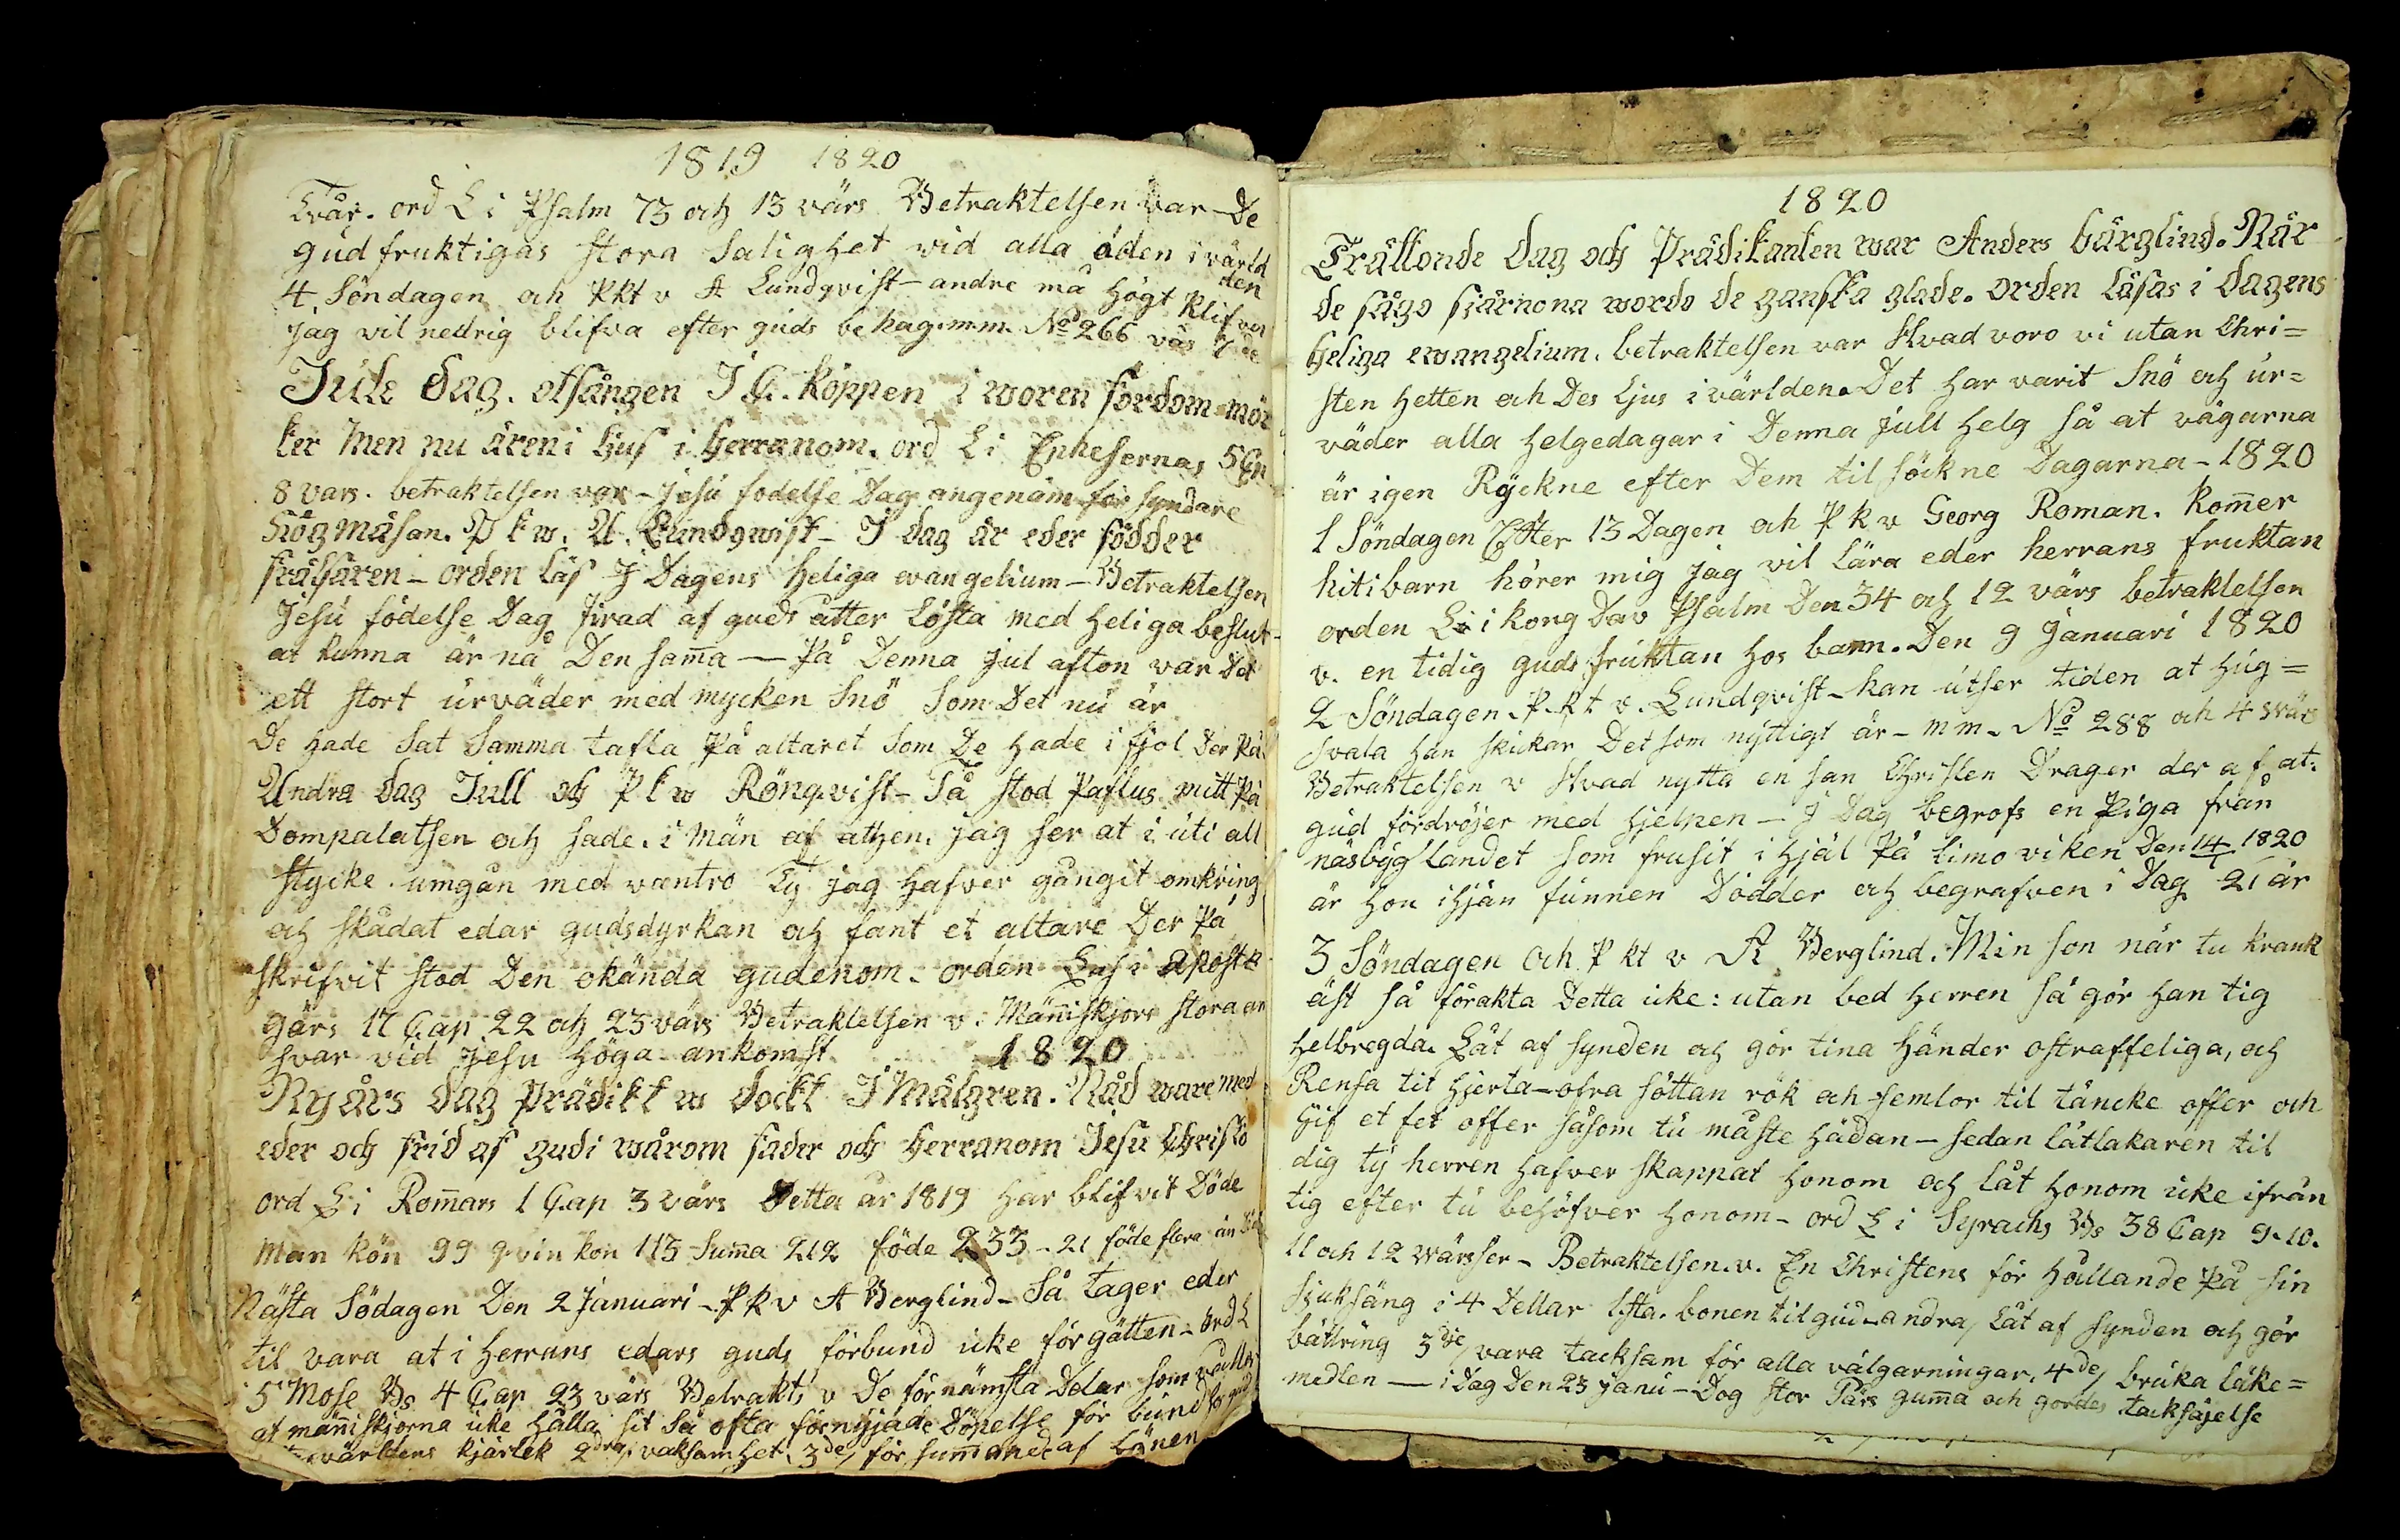 1819 1820
Tvär. ord L i Psalm 73 och 13 värs Betraktelsen var De
gudfruktigas stora Salighet vid alla öden i värld
den
4. Söndagen och Pkt v A Lundqvist - andre må högt klifva
jag vil nedrig blifva efter guds behag. m.m. No 266 väs 7de
Jule dag. otsången I C. Köppen i woren fordom mör
ker Men nu ären i ljus i Herranom. ord L i Ephesernas 5 Cap
8 vars. betraktelsen var - Jesu födelse Dag angenäm för syndare
Högmäsan. P k w. A. Lundqwist - I dag är eder födder
frälsaren - orden läs I Dagens Heliga evangelium - Betraktelsen
Jesu födelse Dag firad af guds ätter Lösta med heliga beslut
at kunna är nå Den sam̄a — På Denna jul afton var Det
ett stort urväder med mycken Snö Som Det nu är
De hade Sat Samma tafla På altaret Som De hade i fjol Der på
Andra dag Jull och P k w Rönqvist - Så stod Paflus mitt på
Dompalatsen och sade. i Män af athen. jag ser at i uti all
stycke umgån med vantro Ty jag hafver gångit omkring
och skådat edar gudsdyrkan och fant et altare Der På
skrifvit stod Den okända gudenom. orden Läs i apostla
gärs 17 Cap 22 och 23 värs Betraktelsen v. Män̄iskjors stora an
svar vid Jesu höga ankomst 1820
Nyårs dag prädikt w dockt I Mälgren. Nåd ware med
eder och frid af gudi wårom fader och Herranom Jesu Christo
ord L i Rom̄ars 1 Cap 3 värs Detta år 1819 har blifvit Döde
Man kön 99 qvin kon 113 Sum̄a 212 föde 233 - 21 föde flera än
Nästa Södagen Den 2 Januari - Pkv A Berglind - Så tager eder
til vara at i Herrans edars guds förbund icke förgätten - ord L
5 Mose Bs 4 Cap 23 värs Betrakts v De förnämsta Delar som
at män̄iskjorna icke hålla sit så ofta förnyjade Döpelse för bund
världens kjärlek 2dra, vaksamhet. 3de, för sum̄ande af
1820
Trättonde dag och Prädikanten war Anders bärglind. När
de sågo stärnona wordo de ganska glade. orden läsas i dagens
heliga ewangelium. betraktelsen var Hvad voro vi utan Chri=
sten hetten och Des Ljus i världen. Det har varit Snö och ur=
väder alla helgedagar i Denna jull helg så at vägarna
är igen Ryckne efter Dem til söckne Dagarna - 1820
1 Söndagen Efter 13 Dagen och P k v Georg Roman. kom̄er
hit i barn hörer mig jag vil Lära eder herrans fruktan
orden L i kong Dav Psalm Den 34 och 12 värs betraktelsen
v. en tidig guds fruktan hos barn. Den 9 Januari 1820
2 Söndagen. P.kt v. Lundqvist - han utser tiden at hug=
svala han skickar Det som nyttigt är - m m - No 288 och 4 svär
Betraktelsen v Hvad nytta en san Christen Drager der af, at
gud fördröjer med hjelpen - I Dag begrofs en Piga från
näsbyg landet som frusit i hjäl På Limo viken Den 14/1 1820
är hon ihjän funnen Dödder och begrafven i Dag 21 år
3 Söndagen Och P kt v A Berglind. Min son när tu krank
äst så förakta Detta icke: utan bed herren så gör han tig
helbregda. Låt af synden och gör tina händer ostraffeliga, och
Rensa tit hjerta - ofra söttan rök och semlor til täncke offer och
Gif et fet offer såsom tu måste hädan - sedan låtläkaren til
dig ty herren hafver skappat honom och låt honom icke ifrån
tig efter tu behöfver honom - ord L i Syrachs Bs 38 Cap 9.10.
11 och 12 värsser - Betraktelsen. v. En Christens för hållande På sin
sjuksäng i 4 Dellar 1.sta. bönen til gud - andra, låt af synden och gör
bättring 3dje, vara tacksam för alla välgärningar. 4de, bruka läke=
medlen — i Dag Den 23 janu - Dog stor Pärs gum̄a och gordes tacksäjelse